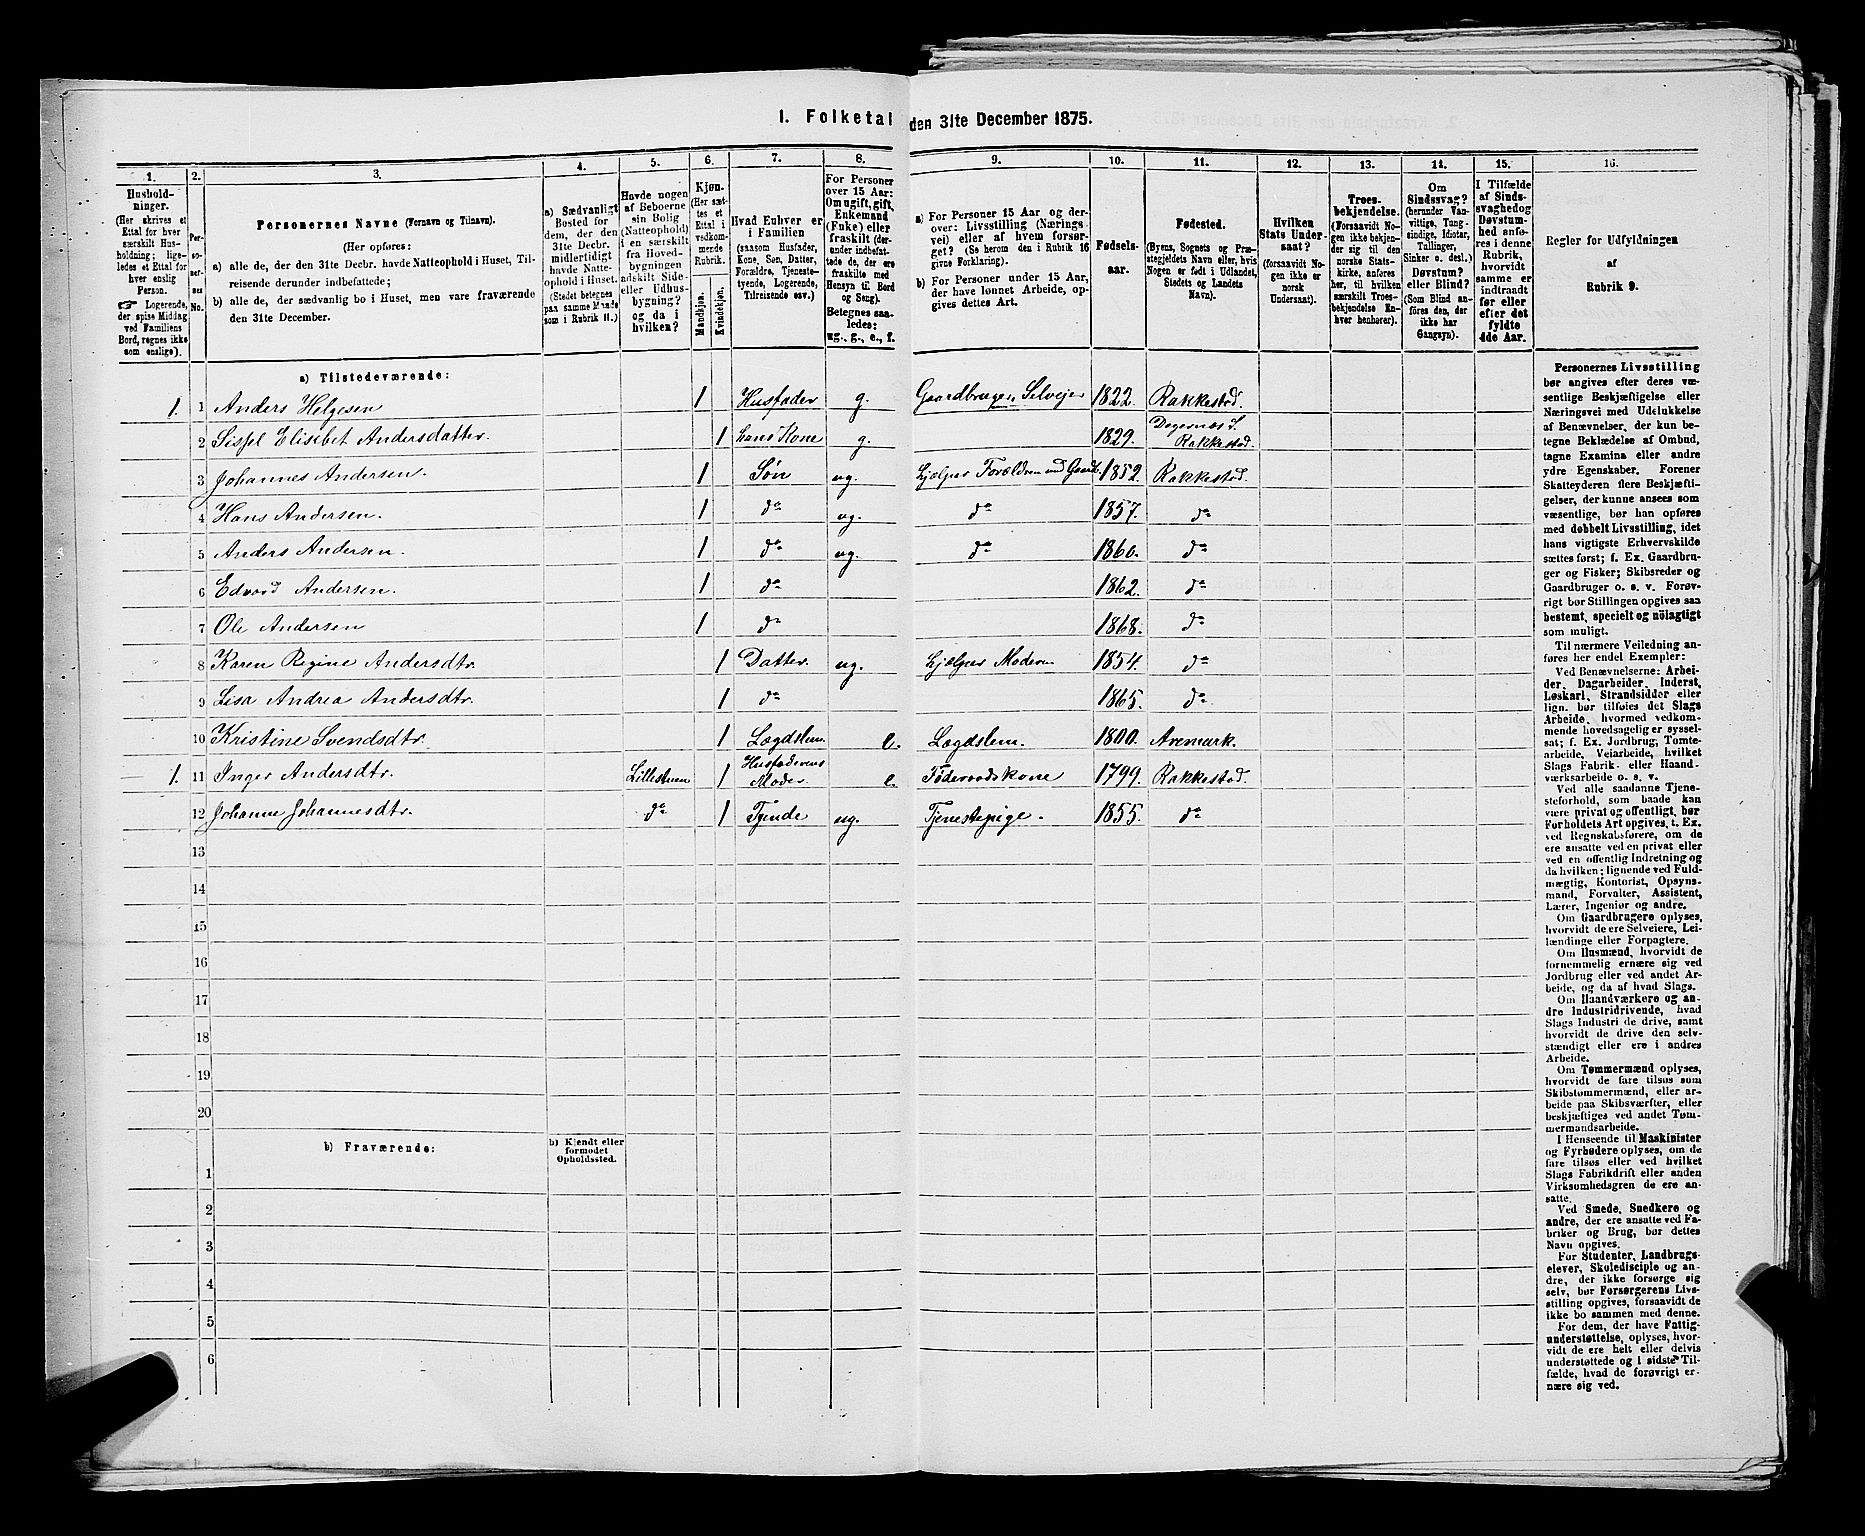 1. Folketal den 31te December 1875.
1. 2. 3. 4. 5. 6. 7. 8. 9. 10. 11. 12. 13. 14. 15. 16.
Hushold-
ninger.
(Her skrives et
Ettal for hver
særskilt Hus-
holdning; lige-
ledes et Ettal for
hver enslig
Person.
☞ Logerende,
der spise Middag
ved Familiens
Bord, regnes ikke
som enslige).
Per-
so-
ner-
nes
No.
Personernes Navne (Fornavn og Tilnavn).
(Her opføres:
a) alle de, der den 31te Decbr. havde Natteophold i Huset, Til-
reisende derunder indbefattede;
b) alle de, der sædvanlig bo i Huset, men vare fraværende
den 31te December.
a) Sædvanligt
Bosted for
dem, der den
31te Decbr.
midlertidigt
havde Natte-
ophold i Huset.
(Stedet betegnes
paa samme Maade
som i Rubrik 11.)
Havde nogen
af Beboerne
sin Bolig
(Natteophold)
i en særskilt
fra Hoved-
bygningen
adskilt Side-
eller Udhus-
bygning?
og da i
hvilken?
Kjøn.
(Her sæt-
tes et
Ettal i
vedkom-
mende
Rubrik.
Mandkjøn.
Kvindekjøn.
Hvad Enhver er
i Familien
(saasom Husfader,
Kone, Søn, Datter,
Forældre, Tjeneste-
tyende, Logerende,
Tilreisende osv.)
For Personer
over 15 Aar:
Om ugift, gift,
Enkemand
(Enke) eller
fraskilt (der-
under indbefat-
tede de, der ere
fraskilte med
Hensyn til Bord
og Seng).
Betegnes saa-
ledes:
ug., g., e., f.
a) For Personer 15 Aar og der-
over: Livsstilling (Nærings-
vei) eller af hvem forsør-
get? (Se herom den i Rubrik 16
givne Forklaring).
b) For Personer under 15 Aar,
der have lønnet Arbeide, op-
gives dettes Art.
Fødsels-
aar.
Fødested.
(Byens, Sognets og Præ-
stegjeldets Navn eller, hvis
Nogen er født i Udlandet,
Stedets og Landets
Navn).
Hvilken
Stats Under-
saat?
(forsaavidt No-
gen ikke er
norsk
Undersaat).
Troes-
bekjendelse.
(Forsaavidt No-
gen ikke bekjen-
der sig til den
norske Stats-
kirke, anføres
her, til hvilken
særskilt Troes-
bekjendelse En-
hver henhører).
Om
Sindssvag?
(herunder Van-
vittige, Tung-
sindige, Idioter,
Tullinger,
Sinker o. desl.)
Døvstum?
eller Blind?
(Som Blind an-
føres den, der
ikke har
Gangsyn).
I Tilfælde
af Sinds-
svaghed og
Døvstum-
hed anfø-
res i denne
Rubrik,
hvorvidt
samme er
indtraadt
før eller
efter det
fyldte
4de Aar.
Regler for Udfyldningen
af
Rubrik 9.
a) Tilstedeværende:
1. 1 Anders Helgesen 1 Husfader g. Gaardbruger Selveier 1822. Rakkestad.
2 Sissel Elisebet Andersdatter. 1 hans Kone g. 1829. Degernæs S. Rakkestad
3 Johannes Andersen. 1 Søn ug. hjælper Forældrene med Gaardb. 1852. Rakkestad.
4 Hans Andersen. 1 do ug. do 1857. do
5 Anders Andersen. 1 do ug. do 1860. do
6 Edvard Andersen. 1 do 1862. do
7 Ole Andersen 1 do 1868. do
8 Karen Regine Andersdtr. 1 Datter. ug. hjælper Moderen 1854. do
9 Lisa Andrea Andersdtr. 1 do 1865. do
10 Kristine Svendsdtr. 1 Lægdslem. e. Lægdslem. 1800. Aremark.
1. 11 Inger Andersdtr. Lillestuen 1 Husfaderens Moder e. Føderaadskone 1799. Rakkestad.
12 Johanne Johannesdtr. do 1 Tjende ug. Tjenestepige. 1855. do
13
14
15
16
17
18
19
20
b) Fraværende:
b) Kjendt eller
formodet
Opholdssted.
1
2
3
4
5
6
Personernes Livsstilling
bør angives efter deres væ-
sentlige Beskjæftigelse eller
Næringsvei med Udelukkelse
af Benævnelser, der kun be-
tegne Beklædelse af Ombud,
tagne Examina eller andre
ydre Egenskaber. Forener
Skatteyderen flere Beskjæfti-
gelser, der kunne ansees som
væsentlige, bør han opføres
med dobbelt Livsstilling, idet
hans vigtigste Erhvervskilde
sættes først; f. Ex. Gaardbru-
ger og Fisker; Skibsreder og
Gaardbruger o. s. v. Forøv-
rigt bør Stillingen opgives saa
bestemt, specielt og nöiagtigt
som muligt.
Til nærmere Veiledning an-
føres her endel Exempler:
Ved Benævnelserne: Arbei-
der, Dagarbeider, Inderst,
Løskarl, Strandsidder eller
lign. bør tilføies det Slags
Arbeide, hvormed vedkom-
mende hovedsagelig er syssel-
sat; f. Ex. Jordbrug, Tomte-
arbeide, Veiarbeide, hvilket
Slags Fabrik- eller Haand-
værksarbeide o. s. v.
Ved alle saadanne Tjene-
steforhold, som baade kan
være privat og offentligt, bør
Forholdets Art opgives, t. Ex.
ved Regnskabsførere, om de
ere ansatte ved en privat eller
ved en offentlig Indretning og
da hvilken; lignende ved Fuld-
mægtig, Kontorist, Opsyns-
mand, Forvalter, Assistent,
Lærer, Ingeniør og andre.
Om Gaardbrugere oplyses,
hvorvidt de ere Selveiere, Lei-
lændinge eller Forpagtere.
Om Husmænd, hvorvidt de
fornemmelig ernære sig ved
Jordbrug eller ved andet Ar-
beide, og da af hvad Slags.
Om Haandværkere og an-
dre Industridrivende, hvad
Slags Industri de drive, samt
hvorvidt de drive den selv-
stændigt eller ere i andres
Arbeide.
Om Tømmermænd oplyses,
hvorvidt de fare tilsøs som
Skibstømmermænd, eller ar-
beide paa Skibsværfter, eller
beskjæftiges ved andet Tøm-
mermandsarbeide.
I Henseende til Maskinister
og Fyrbødere oplyses, om de
fare tilsøs eller ved hvilket
Slags Fabrikdrift eller anden
Virksomhedsgren de ere an-
satte.
Ved Smede, Snedkere og
andre, der ere ansatte ved Fa-
briker og Brug, bør dettes
Navn opgives.
For Studenter, Landbrugs-
elever, Skoledisciple og an-
dre, der ikke forsørge sig
selv, bør Forsørgerens Livs-
stilling opgives, forsaavidt de
ikke bo sammen med denne.
For dem, der have Fattig-
understøttelse, oplyses, hvor-
vidt de ere helt eller delvis
understøttede og i sidste Til-
fælde, hvad de forøvrigt er-
nære sig ved.